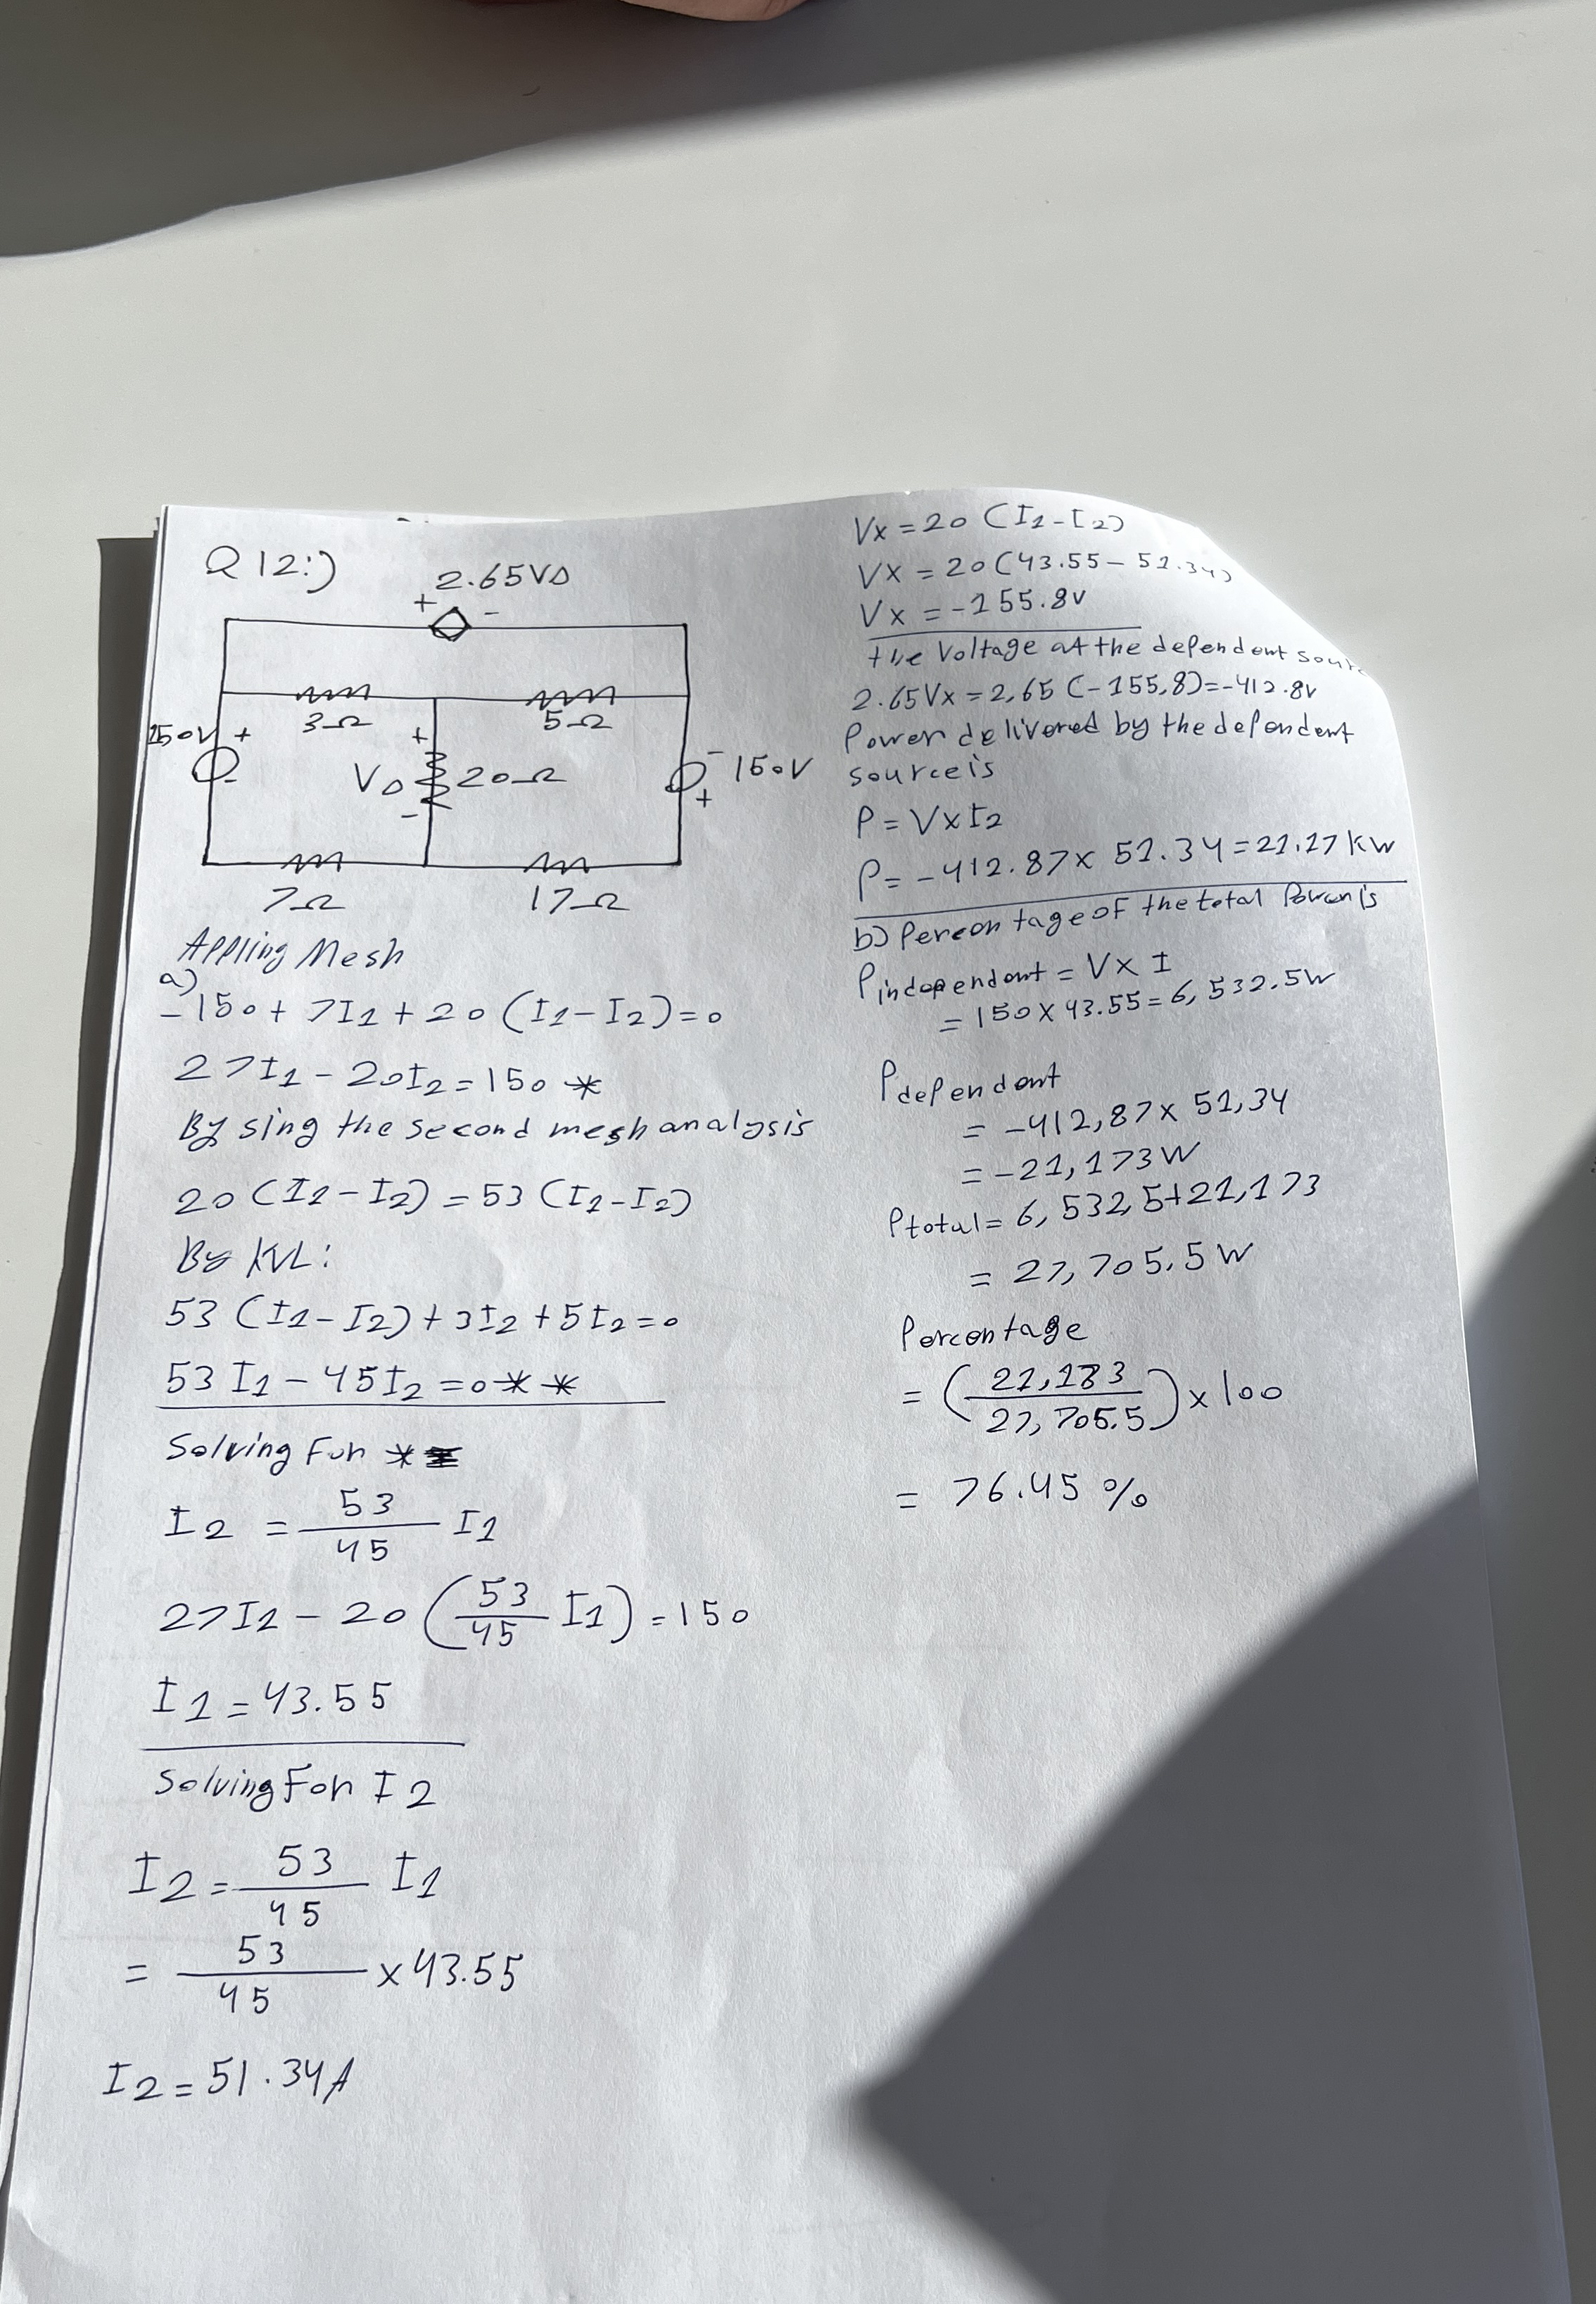 Q12:)
2.65V∆
+ -
3Ω
5Ω
150V +
-
+
V∆
-
20Ω
-
150V
+
7Ω
17Ω
Appling Mesh
a)
-150 + 7I1 + 20 (I1-I2)=0
27I1 - 20I2 = 150 *
By sing the second mesh analysis
20 (I1-I2) = 53 (I1-I2)
By KVL:
53 (I1-I2) + 3I2 + 5I2 = 0
53 I1 - 45I2 = 0 **
Solving For *
I2 = 53/45 I1
27I1 - 20 (53/45 I1) = 150
I1 = 43.55
Solving For I2
I2 = 53/45 I1
= 53/45 × 43.55
I2 = 51.34A
Vx = 20 (I1-I2)
Vx = 20 (43.55 - 51.34)
Vx = -155.8v
the Voltage at the dependent
2.65Vx = 2,65 (-155,8)=-412.8v
Power delivered by the dependent
source is
P = VxI2
P = -412.87 × 51.34 = 21.17 KW
b) Percentage of the total Power is
Pindependent = V× I
= 150 × 43.55 = 6,532.5W
Pdependent
= -412,87× 51,34
= -21,173W
Ptotal = 6,532,5+21,173
= 27,705,5 W
Percentage
= (21,183/27,705.5) × 100
= 76.45 %